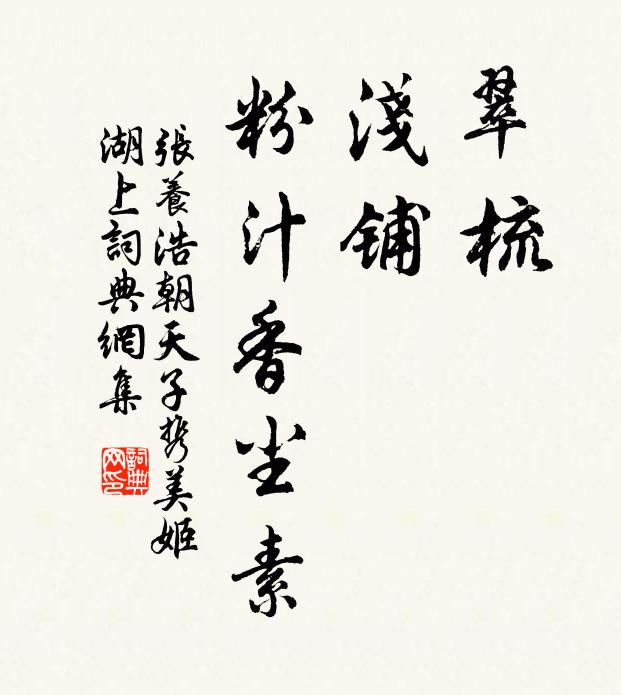 翠梳
淺铺
粉汁香尘素
張養浩朝天子携美姬
湖上詞典網集
詞典
网印